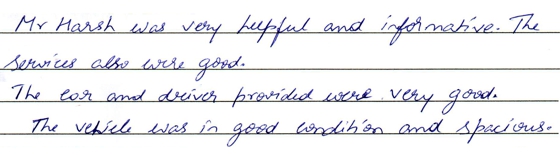 Mr Harsh was very helpful and informative. The
services also were good.
The car and driver provided were very good.
The vehicle was in good condition and spacious.